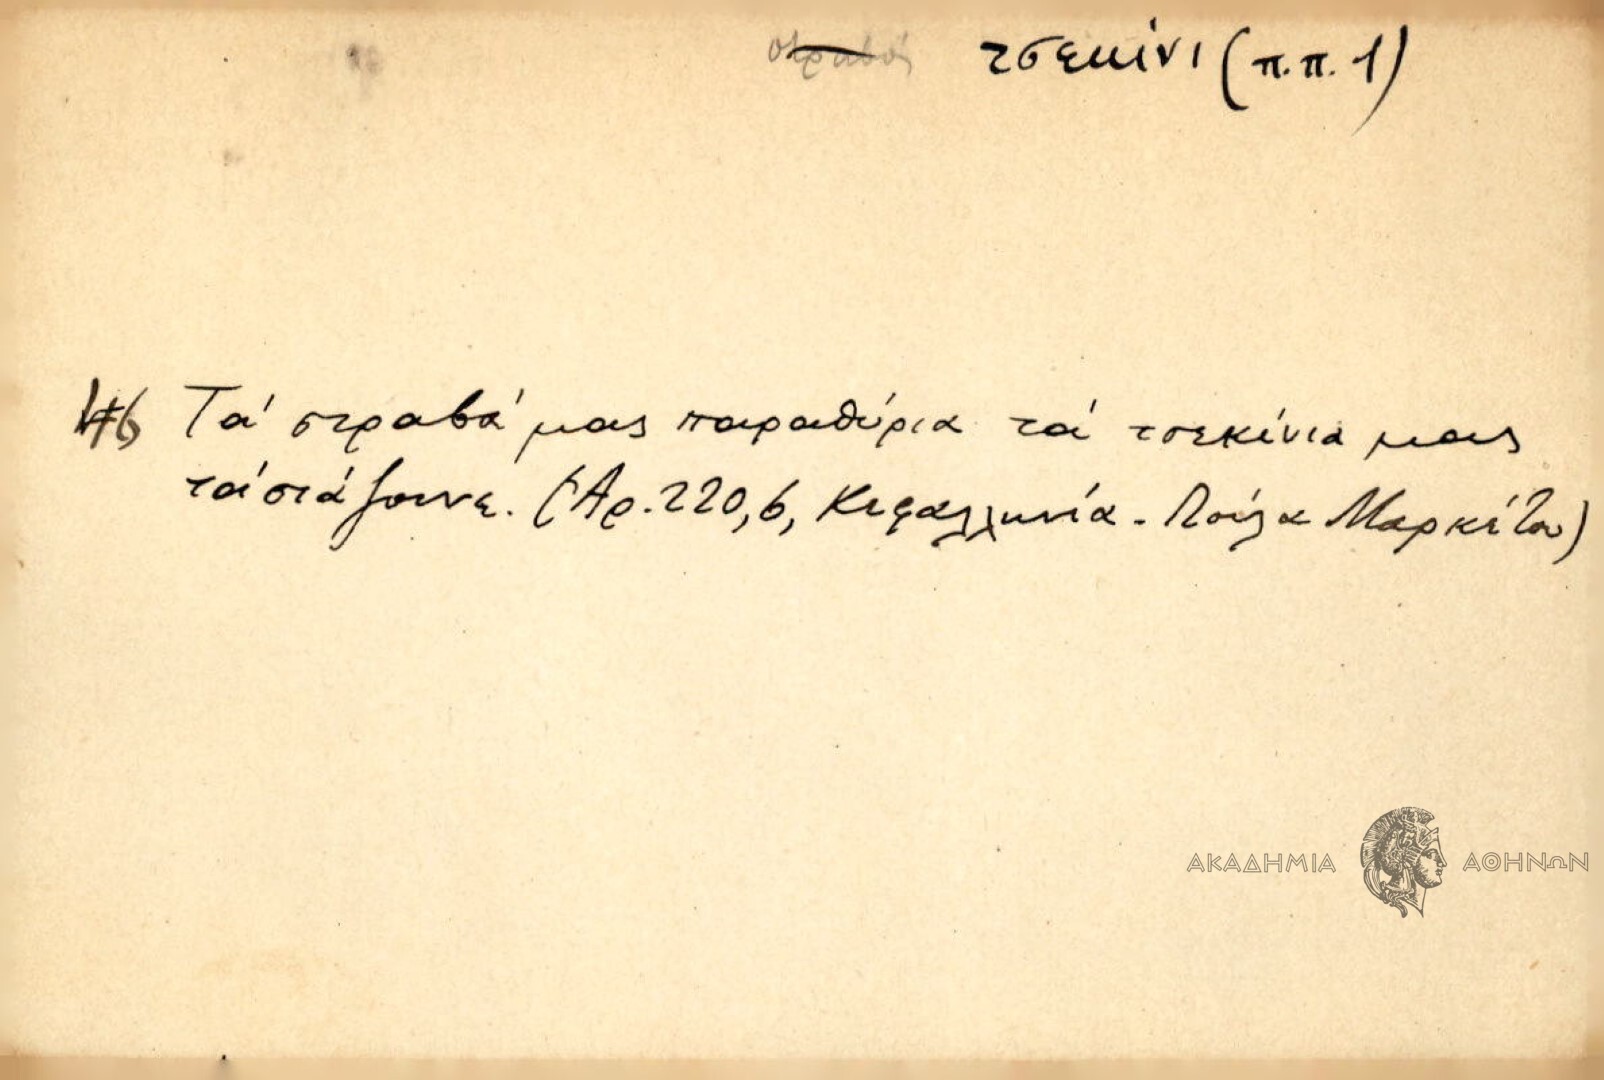 στραβός τσεκίνι (π.π. 1)
Τά στραβά μας παραθύρια τά τσεκίνια μας
τά σιάζουνε. (Ἀρ. 220, 6, Κεφαλληνία - Μαρκέτου)
ΑΚΑΔΗΜΙΑ ΑΘΗΝΩΝ